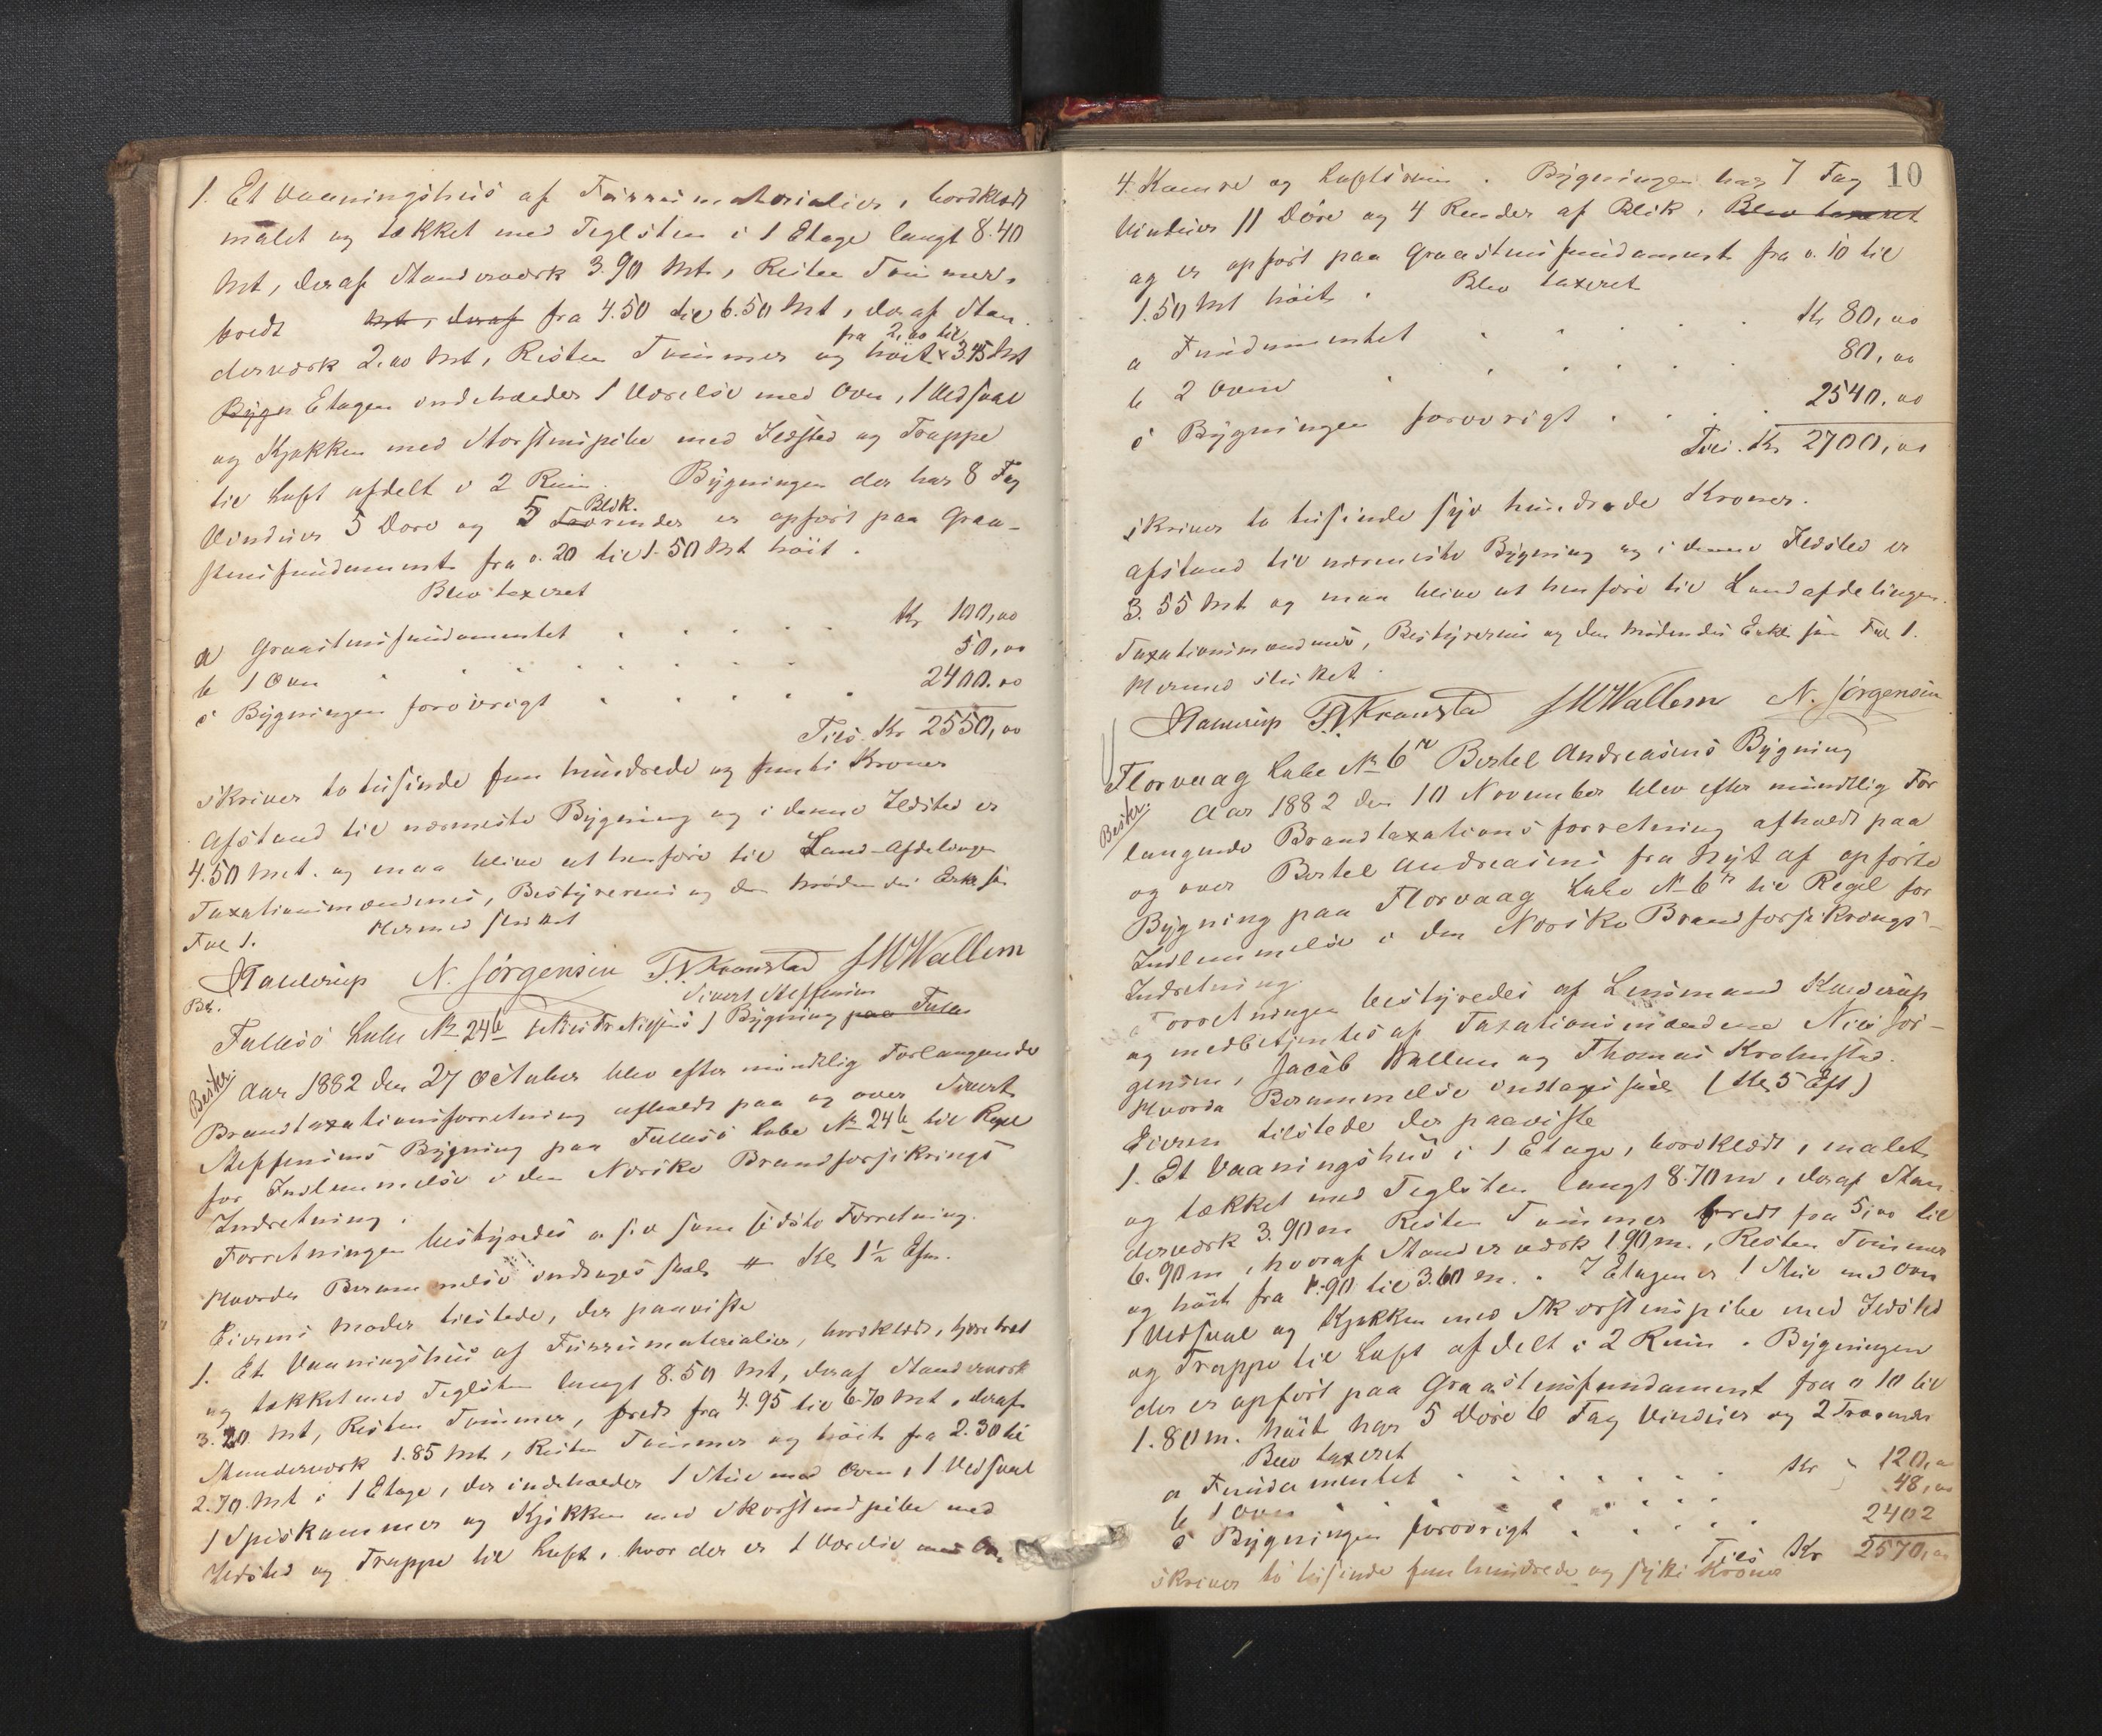 1. Et Vaaningshuus af Furrumaterialier, bordklædt
malet og tækket med Teglsten i 1 Etage langt 8.40
Mt, deraf Standerværk 3.90 Mt, Resten Tømmer,
bredt Mt, deraf fra 4.50 til 6.50 Mt, deraf Stan-
fra 2,00 til
derværk 2.00 Mt, Resten Tømmer og høit 3.45 Mt
Bygn Etagen indeholder 1 Værelse med Ovn, 1 Vedsval
og Kjøkken med Skorstenspibe med Ildsted og Trappe
til Loft afdelt i 2 Rum. Bygningen der har 8 Fag
Blik.
Vinduer 5 Døre og 5 render er opført paa Graa-
stensfundament fra 0.20 til 1.50 Mt høit.
Blev taxeret
a Graastensfundamentet . . . . . Kr 100,00
b 1 Ovn . . . . . . 50,00
c Bygningen forøvrigt . . . . 2400.00
Tils. Kr 2550,00
skriver to tusinde fem hundrede og femti Kroner
Afstand til nærmeste Bygning og i denne Ildsted er
4.50 Mt. og maa blive at henføre til Land-Afdelingen
Taxationsmændenes, Bestyrerens og den mødendes Erkl. se
Fol 1. Hermed sluttet
Kaldrup N. Jørgensen T. Kronstad J M Wallem
Be.
Sivert Steffensen
Follesø Lube No 24b Bygning paa Folles
Beskr.
Aar 1882 den 27 October blev efter mundtlig Forlangende
Brandtaxationsforretning afholdt paa og over Sivert
Steffensens Bygning paa Follesø Lube No 24b til Regel
for Indlemmelse i den Norske Brandforsikrings
Indretning.
Forretningen bestyredes o s. v som sidste Forretning.
Hvorda Berammelse indtages saal. Kl. 1½ Efm.
Eierens Moder tilstede, der paaviste
1. Et Vaaningshuus af Furrumaterialier, bordklædt, tjærebræt
og tækket med Teglsten langt 8.50 Mt, deraf Standerværk
3.20 Mt, Resten Tømmer, bredt fra 4.95 til 6.70 Mt, deraf
Standerværk 1.85 Mt, Resten Tømmer og høit fra 2.30 til
2.70 Mt i 1 Etage, der indeholder 1 Stue med Ovn, 1 Vedsval
1 Spiskammer og Kjøkken med Skorstenspibe med
Ildsted og Trappe til Loft, hvor der er 1 Værelse med Ovn
10
4 Kamre og Loftsrum. Bygningen har 7 Fag
Vinduer 11 Døre og 4 Render af Blik. Blev taxeret
og er opført paa Graastensfundament fra 0.10 til
1.50 Mt høit. Blev taxeret
a Fundamentet . . . . . Kr 80,00
b 2 Ovne . . . . . 80,00
c Bygningen forøvrigt . . . . 2540.00
Tils. Kr 2700,00
skriver to tusinde syv hundrede Kroner.
Afstand til nærmeste Bygning og i denne Ildsted er
3.55 Mt og maa blive at henføre til Landafdelingen.
Taxationsmændenes, Bestyrerens og den mødendes Erkl. se Fol 1.
Hermed sluttet.
Kaldrup T. Kronstad J M Wallem N. Jørgensen
Florvaag Lube No 6 Bertel Andreasens Bygning
Beskr.
Aar 1882 den 10 November blev efter mundtlig For
langende Brandtaxationsforretning afholdt paa
og over Bertel Andreasens fra Nyt af opførte
Bygning paa Florvaag Lube No 6 til Regel for
Indlemmelse i den Norske Brandforsikrings-
Indretning.
Forretningen bestyredes af Lensmand Kaldrup
og medbetjentes af Taxationsmændene Nils Jør-
gensen, Jacob Wallem og Thomas Krohnstad.
Hvorda Berammelse indtages saal. (Kl. 5 Eft)
Eieren tilstede der paaviste
1. Et Vaaningshuus i 1 Etage, bordklædt, malet
og tækket med Teglsten langt 8.70 m, deraf Stan-
derværk 3.90 m Resten Tømmer bredt fra 5,00 til
6.90 m, hvoraf Standerværk 1.90 m., Resten Tømmer
og høit fra 1.90 til 3.60 m. I Etagen er 1 Stue med Ovn
1 Vedsval og Kjøkken med Skorstenspibe med Ildsted
og Trappe til Loft afdelt i 2 Rum. Bygningen
der er opført paa Graastensfundament fra 0.10 til
1.80 m. høit har 5 Døre 6 Fag Vinduer og 2 Trærender
Blev taxeret
a Fundamentet . . . . . . Kr 120,00
b 1 Ovn . . . . . . . 48,00
c Bygningen forøvrigt . . . . 2402
Tils Kr 2570,00
skriver to tusinde fem hundrede og sytti Kroner